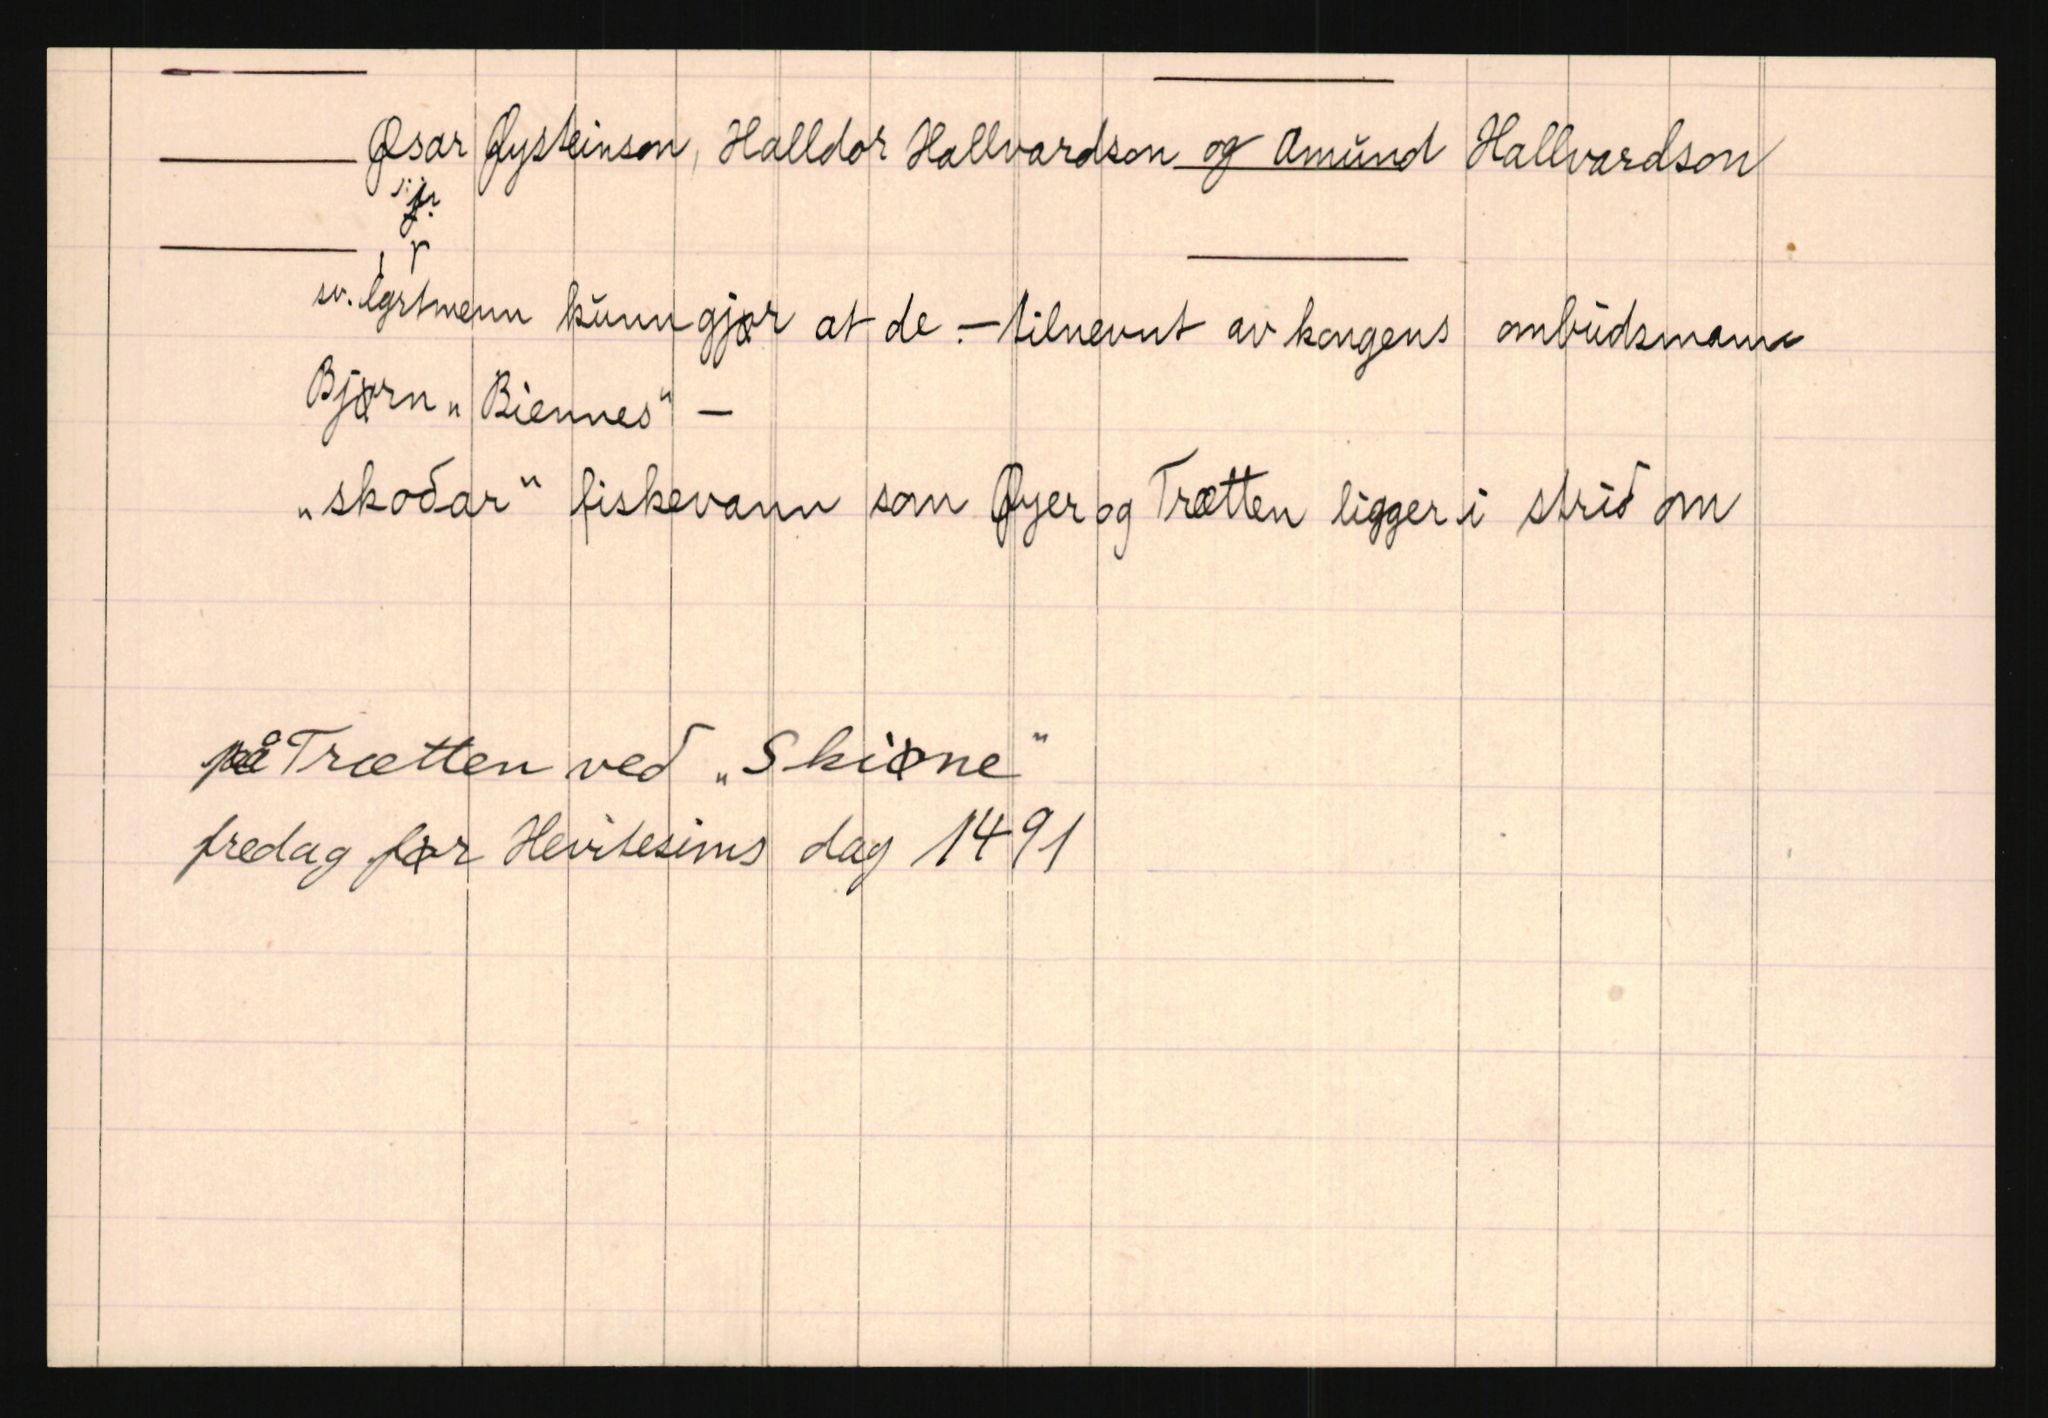 Øsar Øysteinson, Halldor Hallvardson og Amund Hallvardson
sv. lgrtmenn kunngjør at de – tilnevnt av kongens ombudsmann
Bjørn „Biennes“ –
„skoðar“ fiskevann som Øyer og Trætten ligger i strid om
på Trætten ved „Skiøne“
fredag før Hevitesims dag 1491